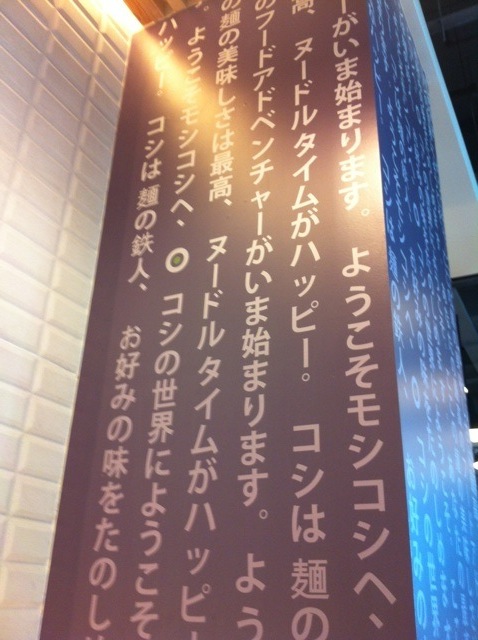 ーがいま始まります。ようこそモシコシへ、
高、ヌードルタイムがハッピー。コシは麺の
のフードアドベンチャーがいま始まります。よう
の麺の美味しさは最高、ヌードルタイムがハッピ
。ようこそモシコシへ、コシの世界にようこそ
ハッピー。コシは麺の鉄人、お好みの味をたのし